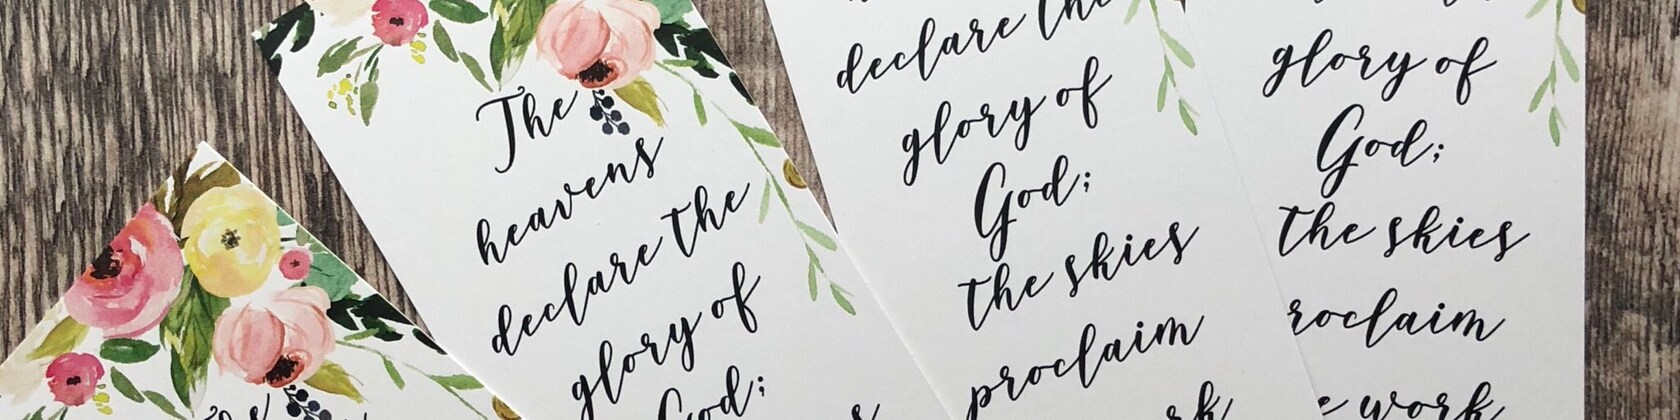 The
heavens
declare the
glory of
God;
declare the
glory of
God;
the skies
proclaim
glory of
God;
the skies
roclaim
work